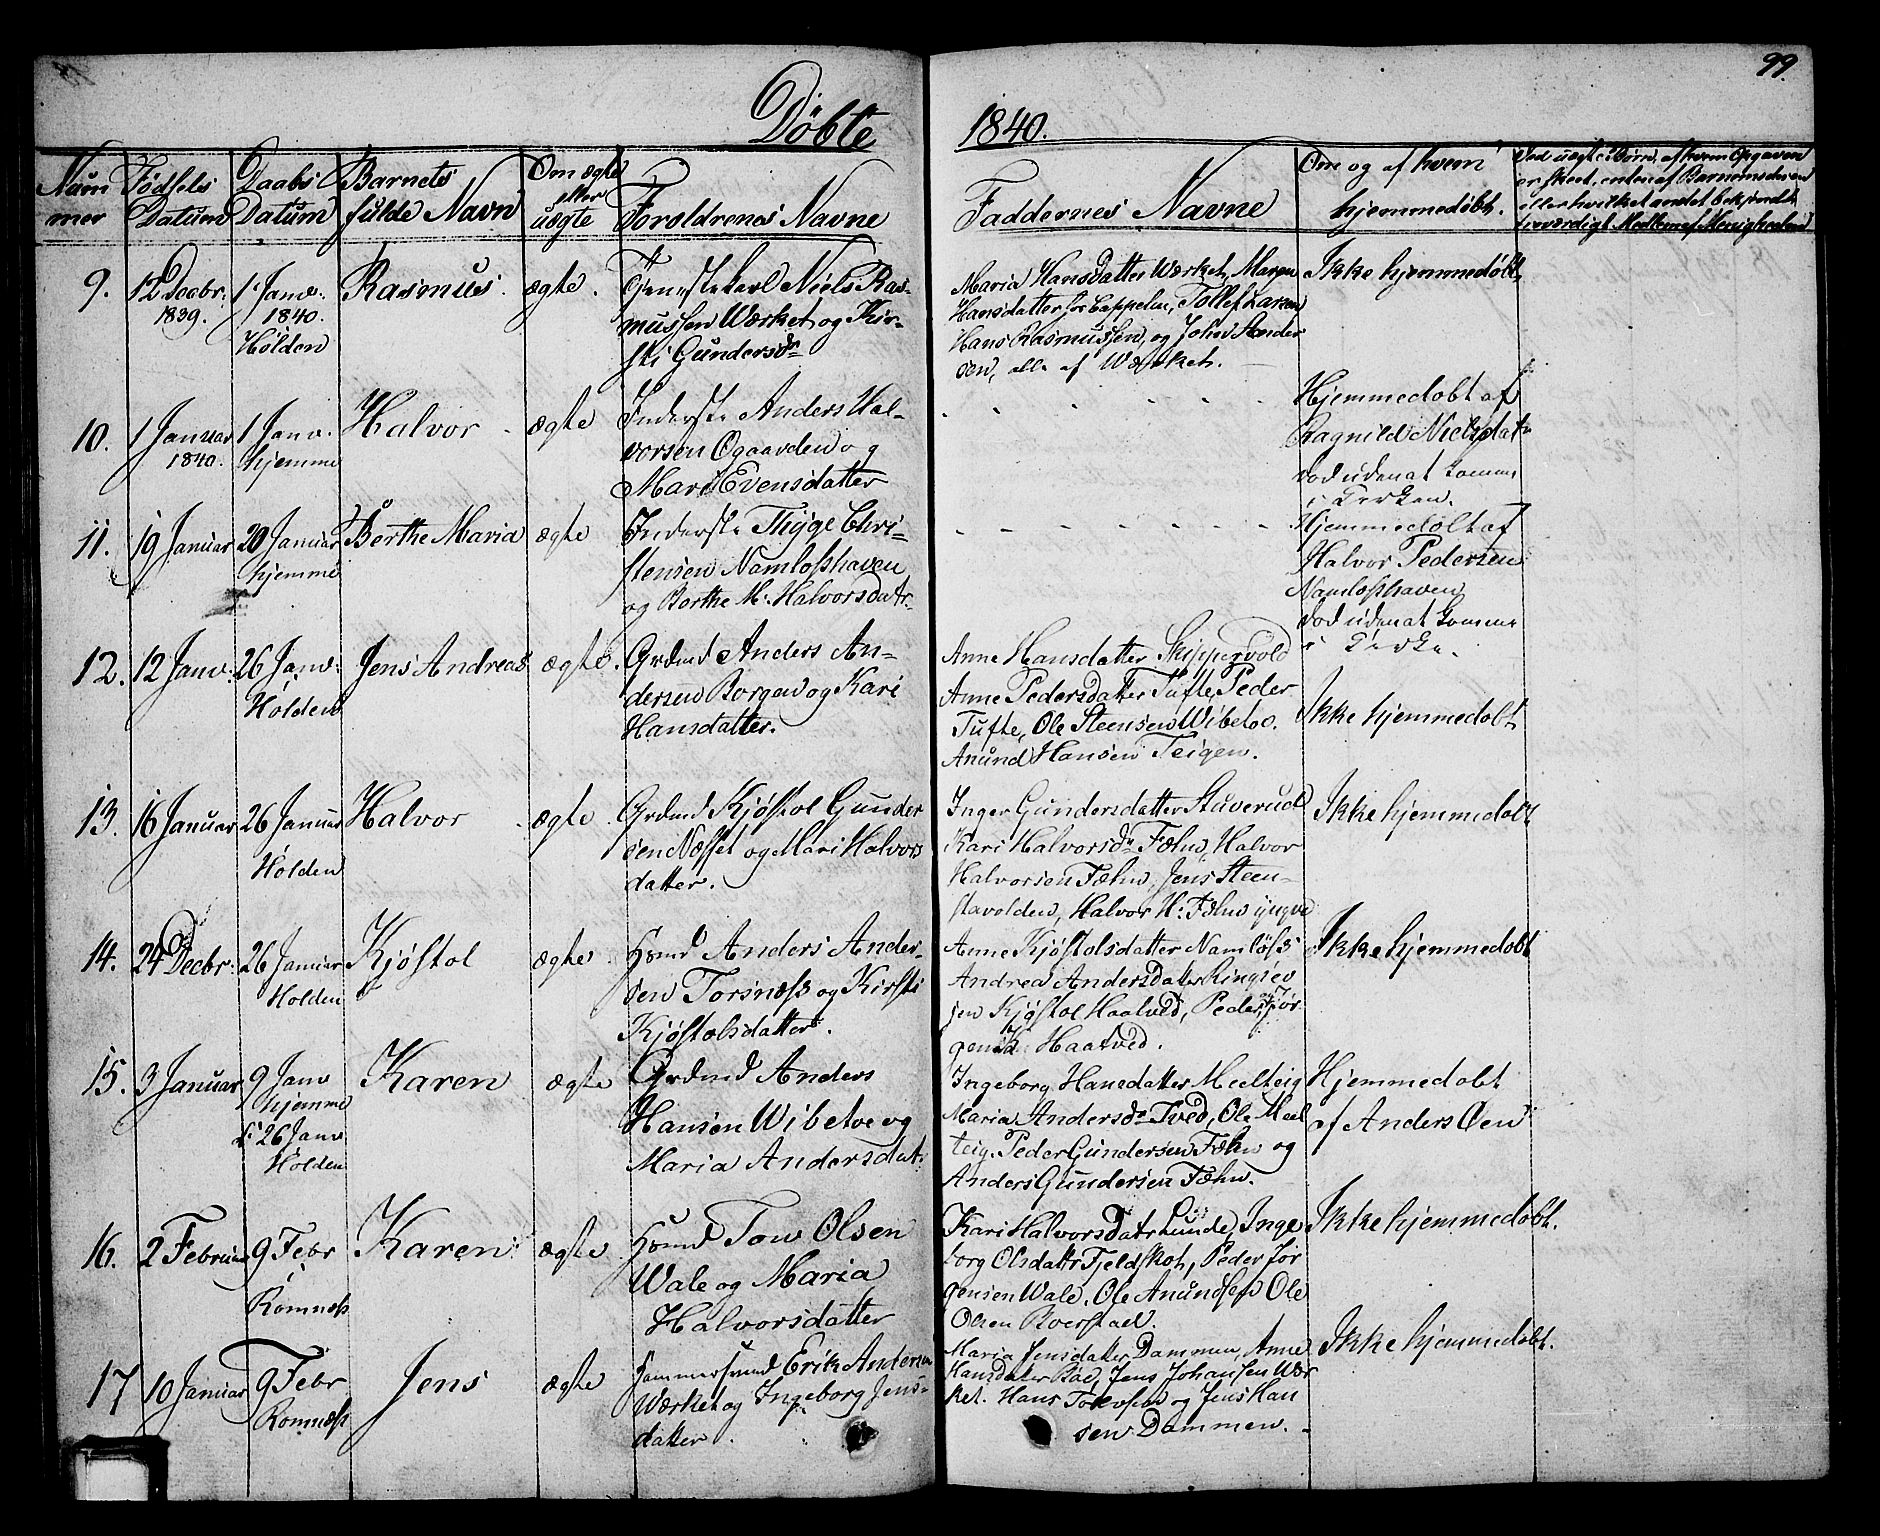 99
Døbte 1840.
Num
mer
Fødsels
Datum
Daabs
Datum
Barnets
fulde Navn
Om ægte
eller
uægte
Foreldrenes Navne
Faddernes Navne
Om og af hvem
hjemmedøbt.
Ved uægte Børn, af hvem Opgaven
er skeet, enten af Barnemoderen
eller hvilket andet bekjendt
troværdigt Medlem af Menigheden
9.
12 Decbr:
1839.
1 Janv:
1840.
Holden
Rasmus.
ægte.
Tjenestekarl Niels Ras-
mussen Værket og Kir-
sti Gundersdr
Maria Hansdatter Værket, Maren
Hansdatter for Cappelen, Tollef Larsen
Hans Rasmussen, og Johan Ander
sen, alle af Værket.
Ikke hjemmedøbt.
10.
1 Januar
1840.
1 Janv.
hjemme
Halvor
ægte
Inderste Anders Hal-
vorsen Ogaarden og
Mari Evensdatter
Hjemmedøbt af
Ragnild Nielsdatr
død uden at komme
i Kirken.
11.
19 Januar
20 Januar
hjemme
Berthe Maria
ægte
Inderste Thyge Chri-
stensen Namloshaven
og Berthe M: Halvorsdatr.
Hjemmedøbt af
Halvor Pedersen
Namloshaven
død uden at komme
i Kirke.
12.
12 Janv:
26 Janv:
Holden
Jens Andreas
ægte.
Grdmd Anders An-
dersen Borgen og Kari
Hansdatter.
Anne Hansdatter Skippervold
Anne Pedersdatter Tufte, Peder
Tufte, Ole Steensen Wibetoe.
Anund Hansen Teigen.
Ikke hjemmedøbt
13.
16 Januar
26 Januar
Holden
Halvor
ægte.
Grdmd Kjøstol Gunder
sen Næsset og Mari Halvors
datter.
Inger Gundersdatter Stuverud
Kari Halvorsdr Fæhn, Halvor
Halvorsen Fæhn, Jens Steen-
stavolden, Halvor H: Fæhn yngre
Ikke hjemmedøbt
14.
24 Decbr:
26 Januar
Holden
Kjøstol
ægte
Hsmd Anders Ander-
sen Torsnæss og Kirsti
Kjøstolsdatter.
Anne Kjøstolsdatter Namløss
Andrea Andersdatter Ringsev
jen Kjøstol Haatved, Peder Jør
gensen Haatved.
Ikke hjemmedøbt
15.
3 Januar
9 Janv
hjemme
d: 26 Janv
Holden
Karen
ægte
Grdmd Anders
Hansen Wibetoe og
Maria Andersdatr
Ingeborg Hansdatter Meelteig
Maria Andersdr Tved, Ole Meel
teig. Peder Gundersen Fæhn og
Anders Gundersen Fæhn.
Hjemmedøbt
af Anders Øen
16.
2 Februar
9 Febr
Romnæs
Karen
ægte
Hsmd Tov Olsen
Wale og Maria
Halvorsdatter
Kari Halvorsdatr Lunde, Inge
borg Olsdattr Fjeldskot, Peder Jør
gensen Wale. Ole Anundsen Ole
Olsen Boerstad.
Ikke hjemmedøbt.
17
10 Januar
9 Febr
Romnæs
Jens
ægte
Hammersmd Erik Andersen
Værket og Ingeborg Jens-
datter.
Maria Jensdatter Dammen, Anne
Hansdatter Bøe, Jens Johansen Vær
ket. Hans Torersen og Jens Han
sen Dammen.
Ikke hjemmedøbt.